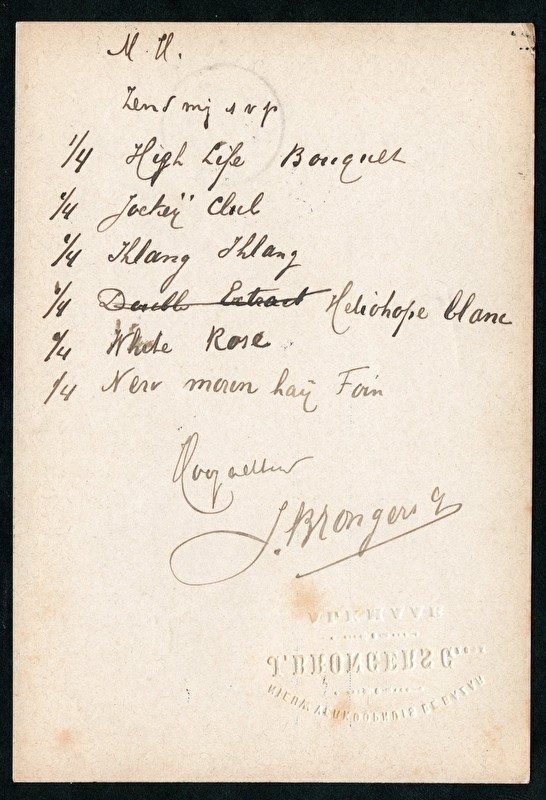 M. H.
Zend mij s v p
1/4 High Life Bouquet
1/4 Jockeÿ Club
1/4 Ihlang Ihlang
1/4 Double Extract Heliotrope blanc
1/4 White Rose
1/4 New mown haÿ Foin
J. Brongers
ALKMAAR
J. BRONGERS Gzn.
DE BAZAR